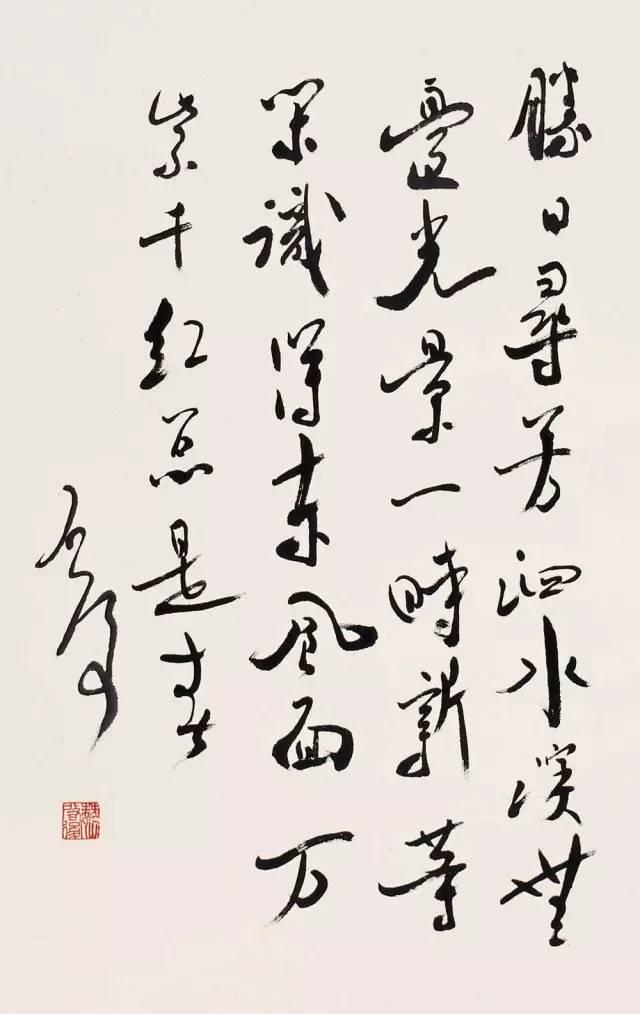 勝日尋芳泗水濱無
邊光景一時新等
閑識得東風面万
紫千紅总是春
启後